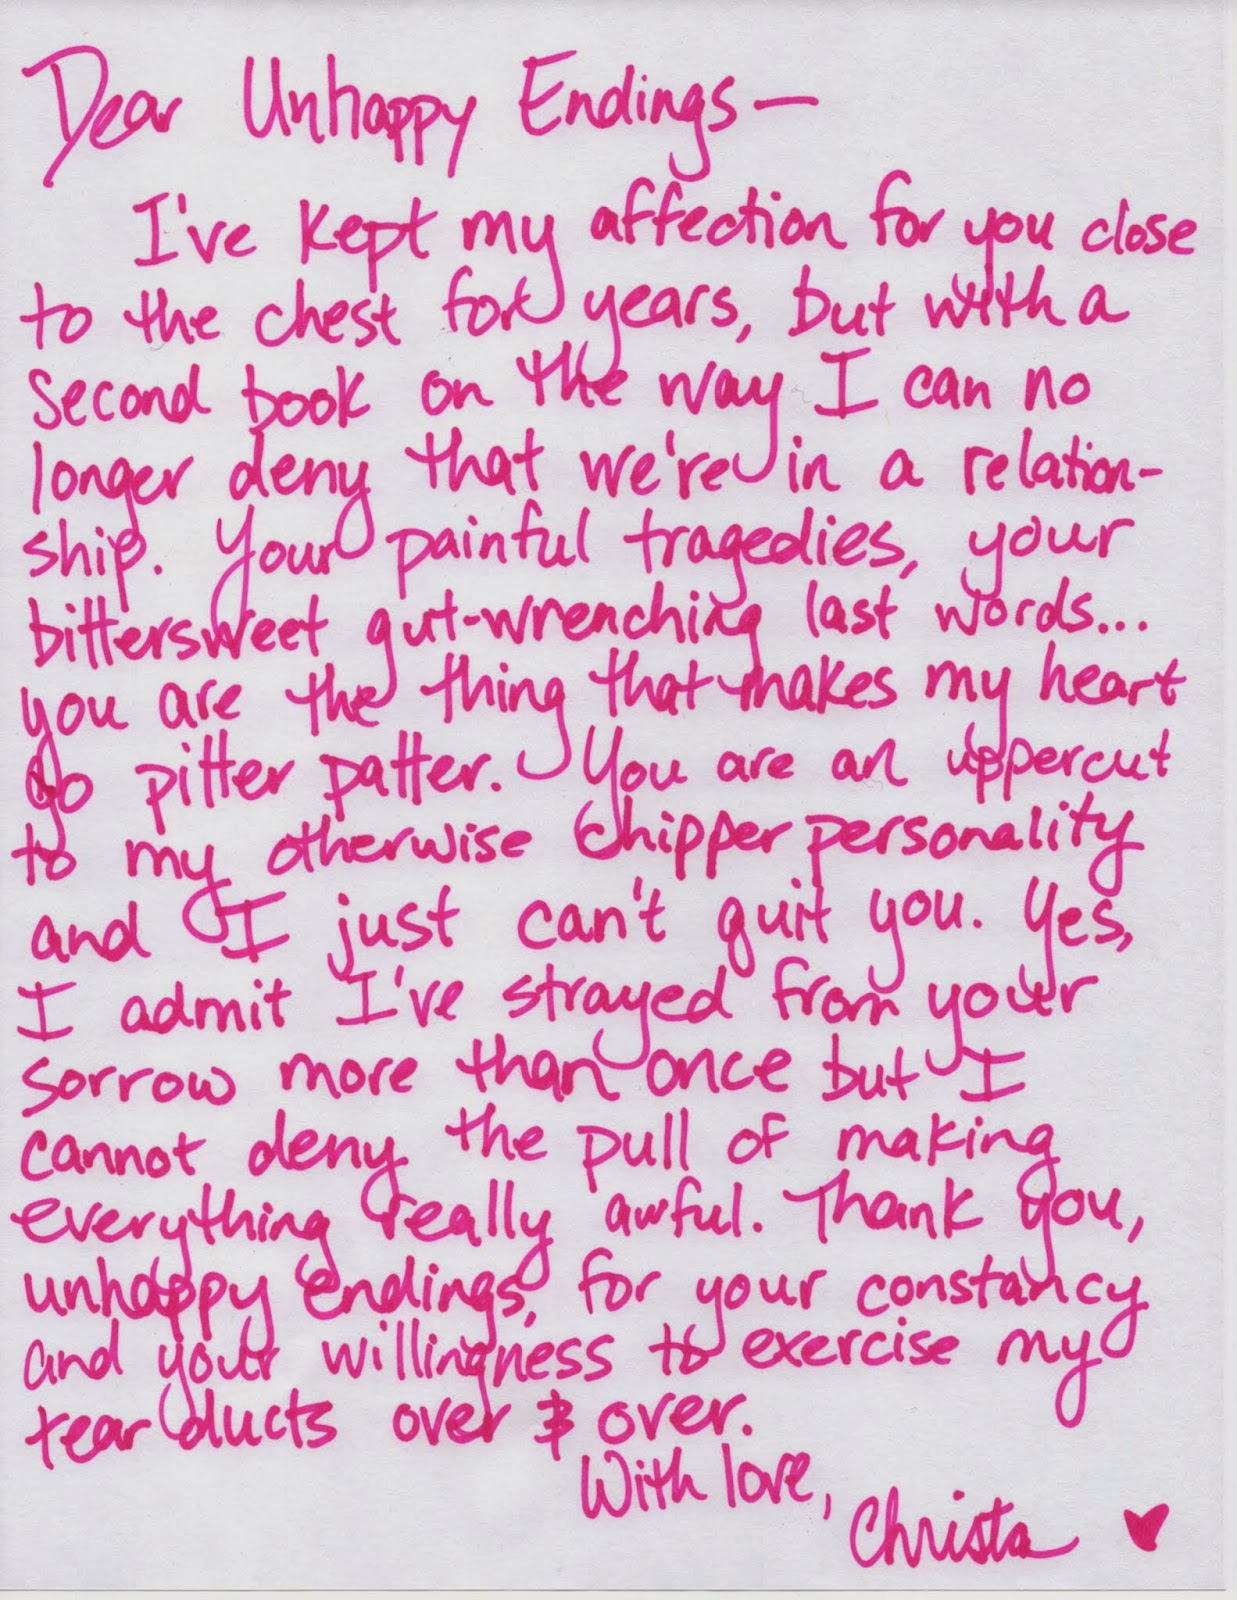 Dear Unhappy Endings—
I've kept my affection for you close
to the chest for years, but with a
second book on the way I can no
longer deny that we're in a relation-
ship. Your painful tragedies, your
bittersweet gut-wrenching last words...
you are the thing that makes my heart
go pitter patter. You are an uppercut
to my otherwise chipper personality
and I just can't quit you. Yes,
I admit I've strayed from your
sorrow more than once but I
cannot deny the pull of making
everything really awful. Thank you,
unhappy endings, for your constancy
and your willingness to exercise my
tear ducts over & over.
With love,
Christa ♥